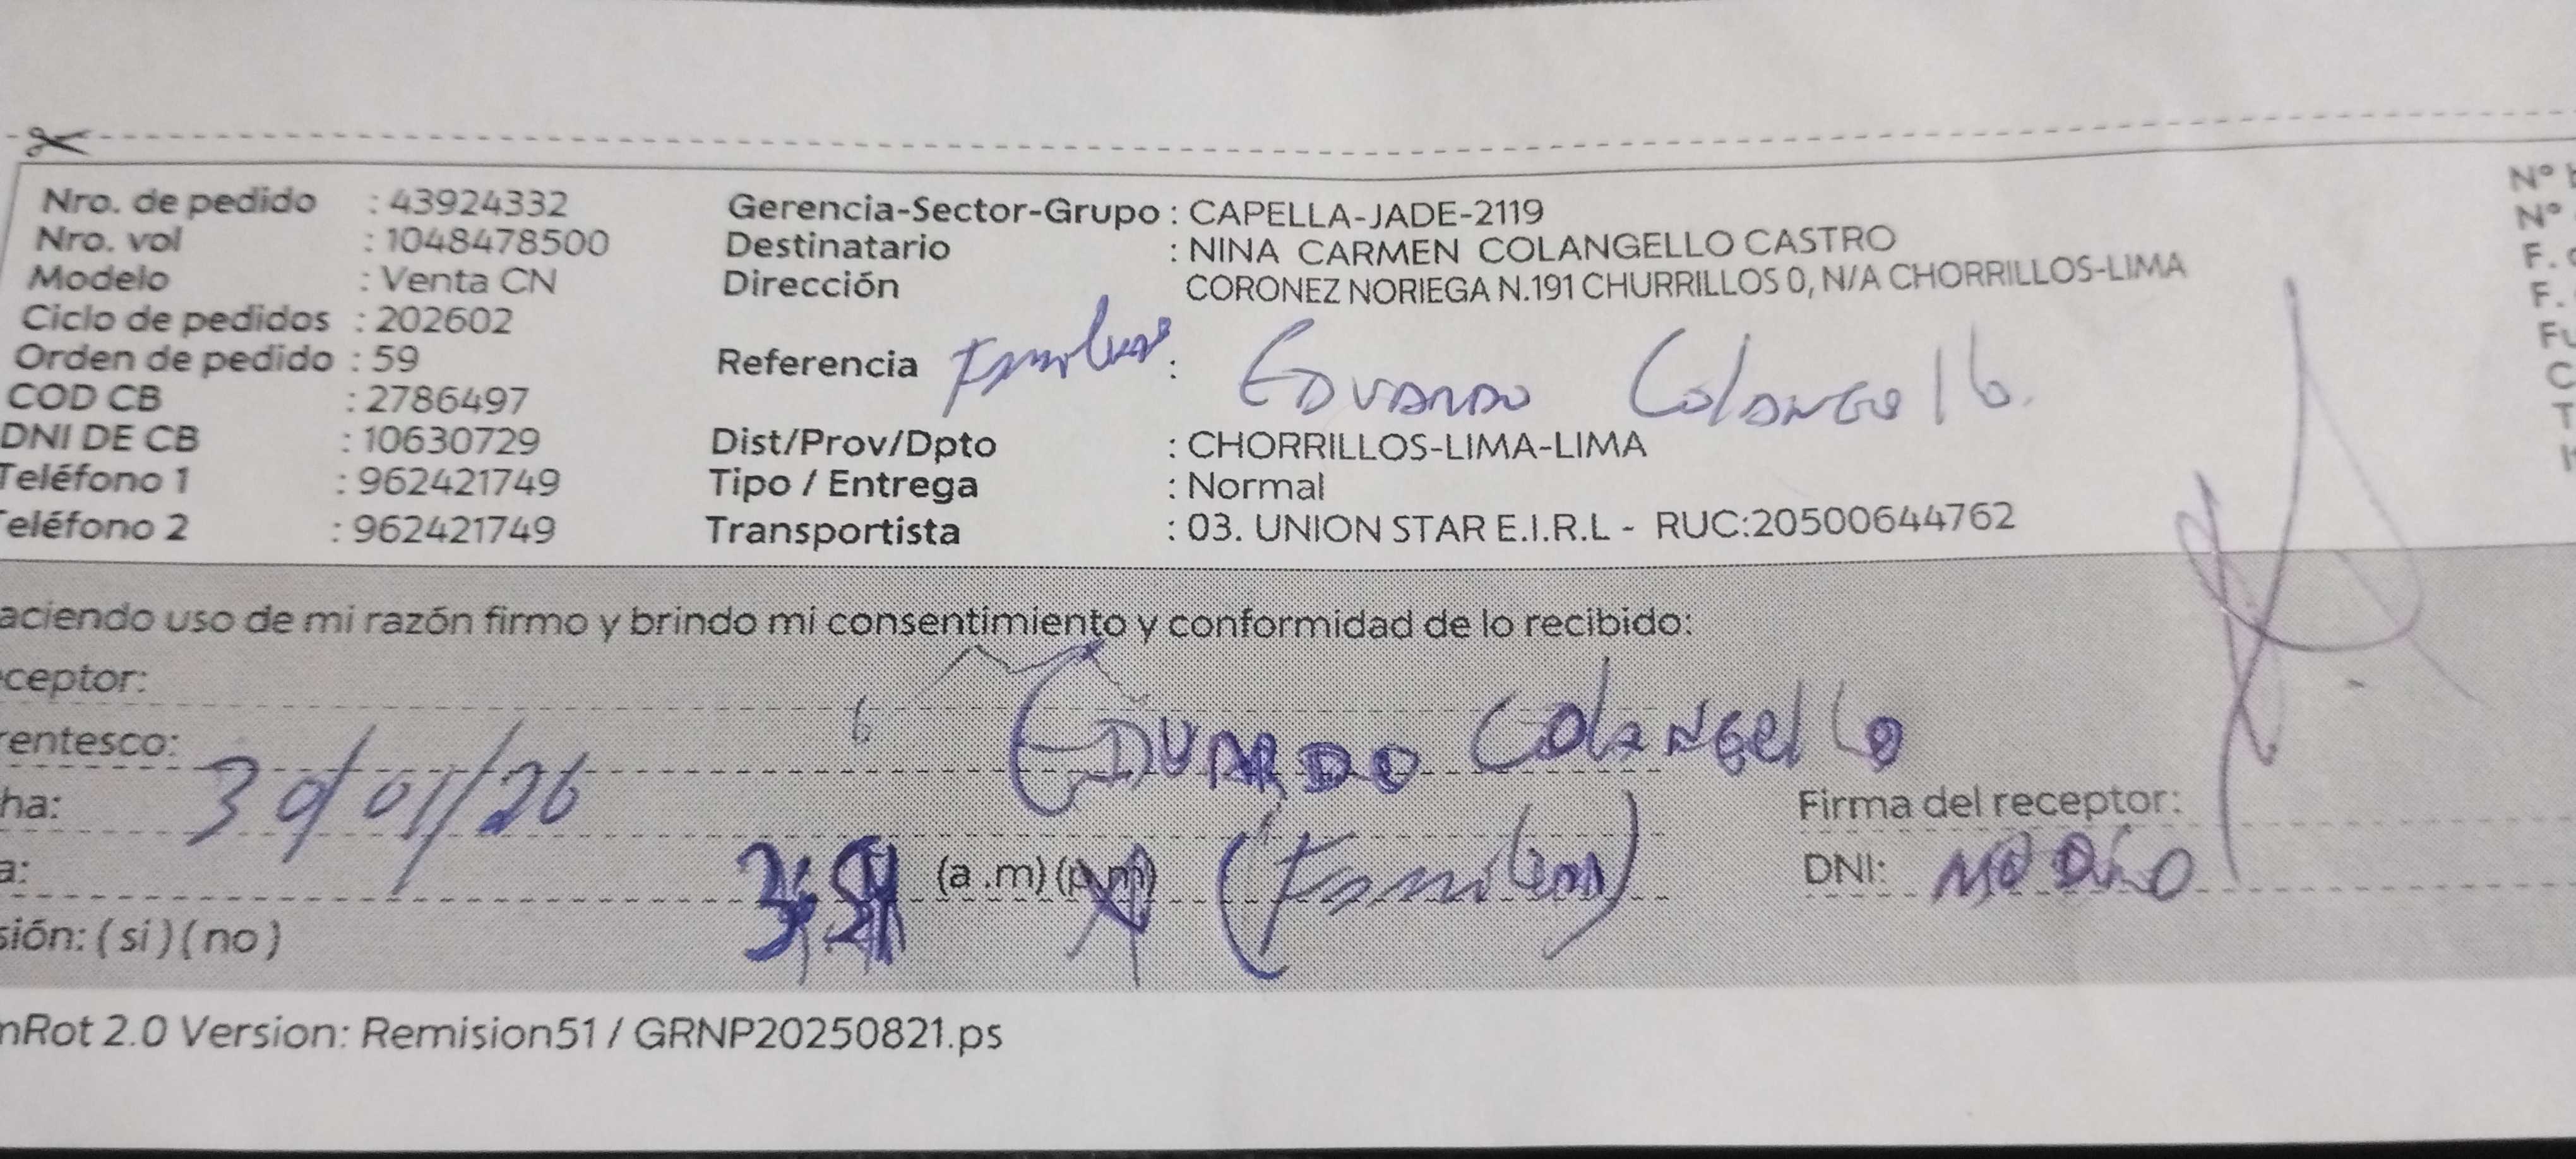 Nro. de pedido : 43924332
Nro. vol : 1048478500
Modelo : Venta CN
Ciclo de pedidos : 202602
Orden de pedido : 59
COD CB : 2786497
DNI DE CB : 10630729
Teléfono 1 : 962421749
Teléfono 2 : 962421749
Gerencia-Sector-Grupo : CAPELLA-JADE-2119
Destinatario : NINA CARMEN COLANGELLO CASTRO
Dirección CORONEZ NORIEGA N.191 CHURRILLOS 0, N/A CHORRILLOS-LIMA
Referencia : Eduardo Colangello
Dist/Prov/Dpto : CHORRILLOS-LIMA-LIMA
Tipo / Entrega : Normal
Transportista : 03. UNION STAR E.I.R.L - RUC:20500644762
Nº
Nº
F.
F.
aciendo uso de mi razón firmo y brindo mi consentimiento y conformidad de lo recibido:
ceptor:
rentesco: EDUARDO Colangello
ha: 30/01/26
Firma del receptor:
a: (a .m) (p.m)
DNI:
sión: ( si ) ( no )
nRot 2.0 Version: Remision51 / GRNP20250821.ps